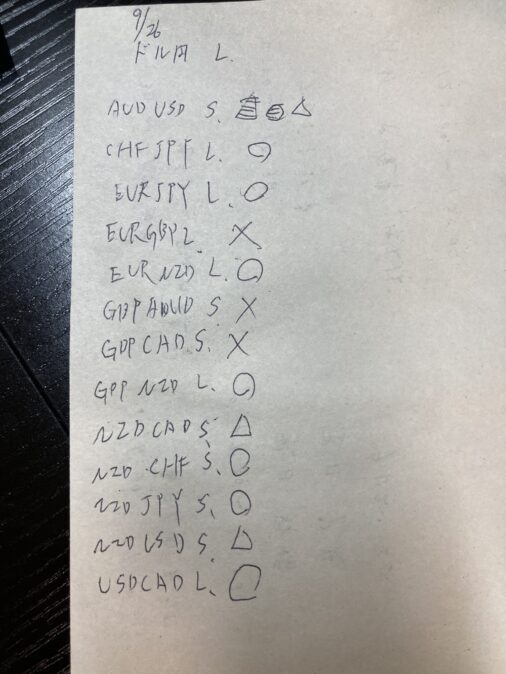 9/26
ドル円 L.
AUDUSD S. △
CHFJPY L. ○
EURJPY L. ○
EURGBP L. ×
EURNZD L. ○
GBPAUD S ×
GBPCAD S. ×
GBPNZD L. ○
NZDCAD S. △
NZD CHF S. ○
NZD JPY S. ○
NZDUSD S. △
USDCAD L. ○